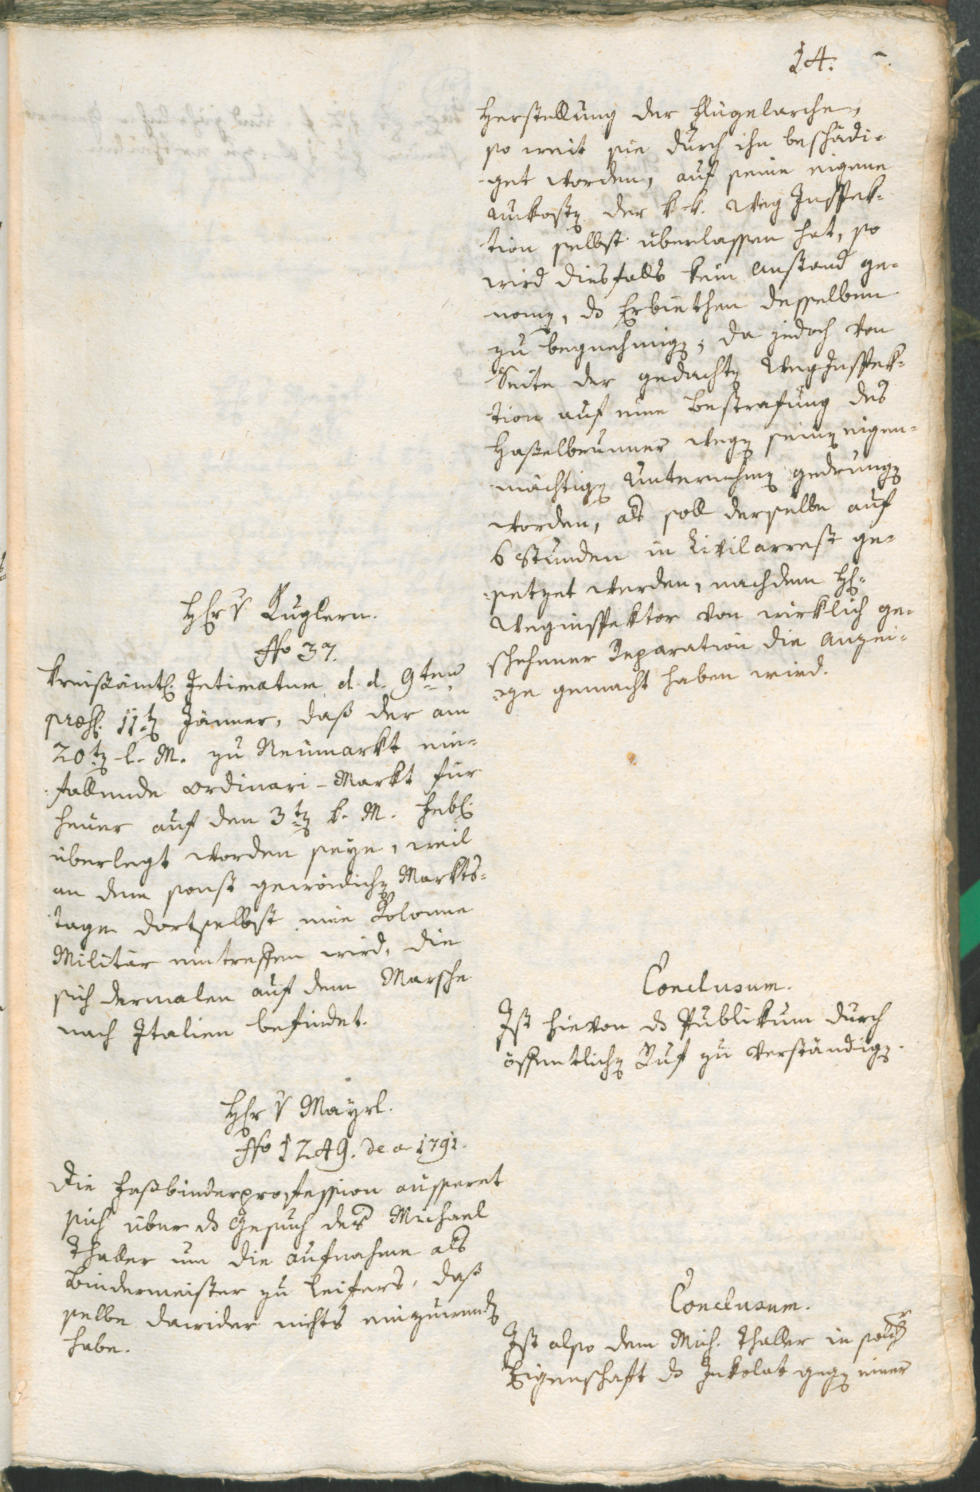 14.
Herstellung der Flügelarchen,
so weit sie durch ihn beschädi-
get worden, auf seine eigene
Unkosten der k. k. Weg Inspek-
tion selbst überlassen hat, so
wird diesfalls kein Anstand ge-
nomen, ds Erbiethen desselben
zu begnehmigen; da jedoch von
Seite der gedachten WegInspek-
tion auf eine Bestrafung des
Haßelbrunner wegen seines eigen-
mächtigen Unternehmen gedrungen
worden, als soll derselbe auf
6 Stunden in Civilarrest ge-
setzet werden, nachdem H:
Weginspektor von wirklich ge-
schehener Reparation die Anzei-
ge gemacht haben wird.
H: v Kuglern.
No 37.
Kreisämtl: Intimatum d. d. 9ten
præs: 11ten Jänner, daß der am
20ten l. M. zu Neumarkt ein-
fallende Ordinari-Markt für
heuer auf den 3ten k. M. Feb:
überlegt worden seye, weil
an dem sonst gewöhnlichen Markts-
tage dortselbst eine Kolonne
Militär eintreffen wird, die
sich dermalen auf dem Marsche
nach Italien befindet.
Conclusum.
Ist hievon ds Publikum durch
öffentlichen Ruf zu verständigen.
H: v Mayrl.
No 1249. de a 1791.
Die Faßbinderprofession äusseret
sich über ds Gesuch des Michael
Thaller um die Aufnahme als
Bindermeister zu Leifers, daß
selbe dawider nichts einzuwenden
habe.
Conclusum.
Ist also dem Mich. Thaller in solcher
Eigenschaft ds Inkolat gegen einer